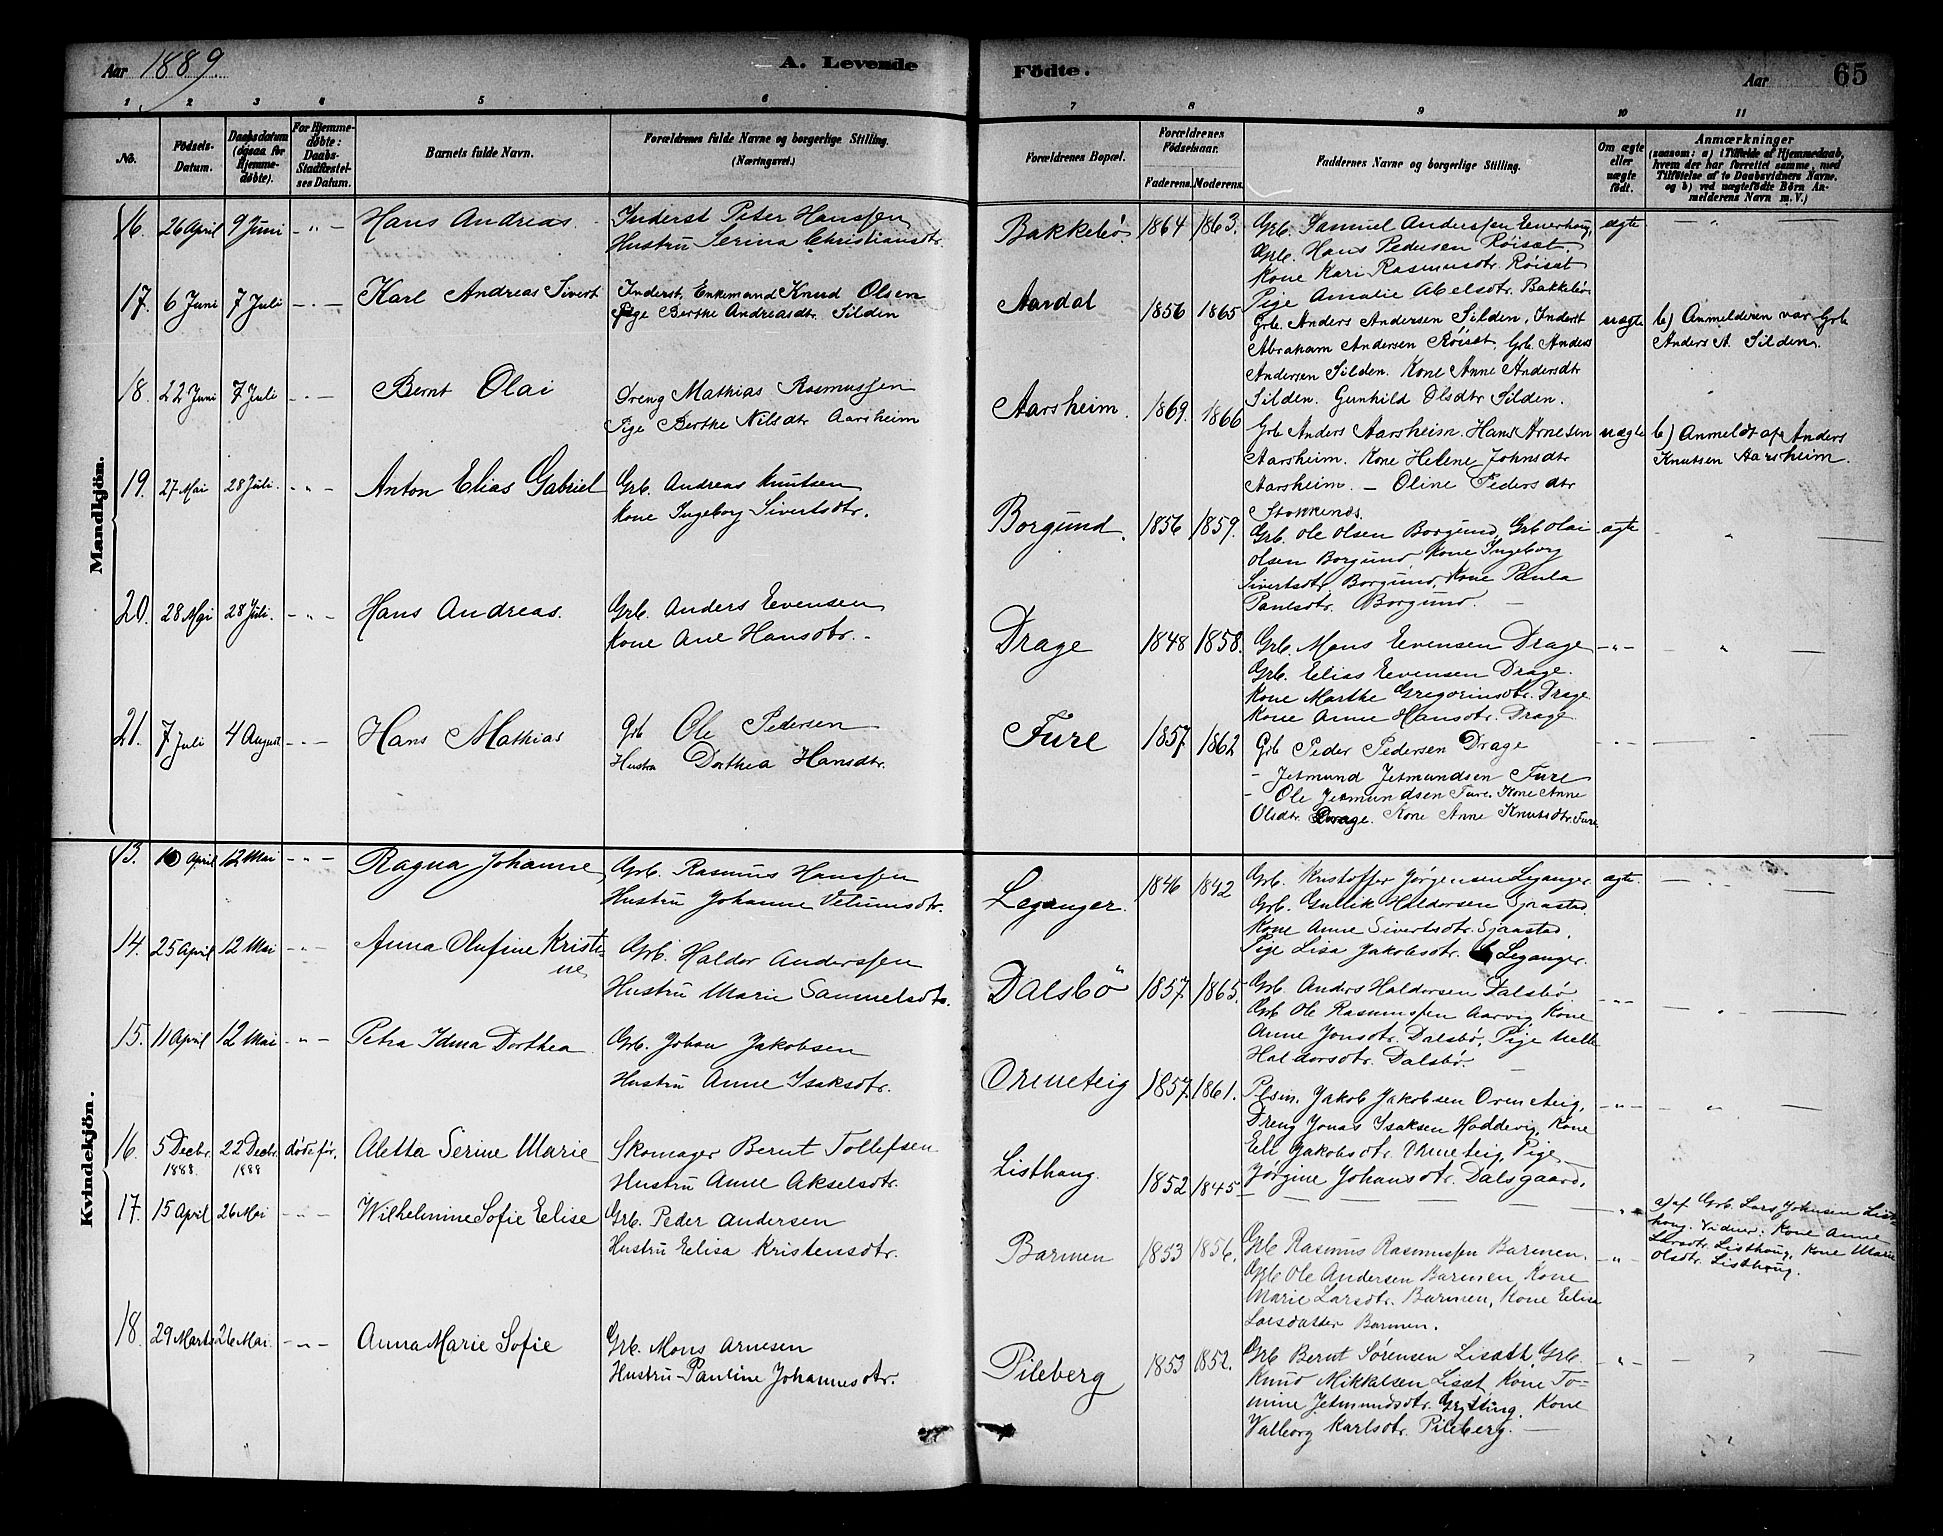 Aar 1889.
A. Levende
Födte.
Aar
65
1 2 3 4 5 6 7 8 9 10 11
No.
Födsels-
Datum.
Daabsdatum
(ogsaa for
Hjemme-
døbte).
For Hjemme-
døbte:
Daabs-
Stadfæstel-
ses Datum.
Barnets fulde Navn.
Forældrenes fulde Navne og borgerlige Stilling.
(Næringsvei.)
Forældrenes Bopæl.
Forældrenes
Fødselsaar.
Faderens. Moderens.
Faddernes Navne og borgerlige Stilling.
Om ægte
eller
uægte
født.
Anmærkninger
(saasom: a) i Tilfælde af Hjemmedaab,
hvem der har forrettet samme, med
Tilføielse af to Daabsvidners Navne,
og b) ved uægtefødte Børn An-
melderens Navn m.V.)
Mandkjön.
16. 26 April 9 Juni - " - Hans Andreas.
Inderst Peter Hanssen
Hustru Serina Christiansdtr.
Bakkebö. 1864 1863.
Grb. Samuel Anderssen
Grb. Hans Pedersen Röiset
Kone Kari Rasmusdtr. Röiset
Pige Amalie Abelsdtr. Bakkebö
ægte
17. 6 Juni 7 Juli - " - Karl Andreas Sivert
Inderst, Enkemand Knud Olsen
Pige Berthe Andreasdtr. Silden
Aardal 1856 1865
Grb. Anders Andersen Silden, Inderst
Abraham Andersen Röiset. Grb. Anders
Andersen Silden. Kone Anne Andersdtr
Silden. Gunhild Olsdtr Silden.
uægte
b) Anmelderen var Grb
Anders A. Silden.
18. 22 Juni 7 Juli - " - Bernt Olai
Dreng Mathias Rasmussen
Pige Berthe Nilsdtr Aarsheim
Aarsheim. 1869. 1866
Grb Anders Aarsheim. Hans Arnesen
Aarsheim. Kone Helene Johnsdtr
Aarsheim. - Oline Pedersdtr
Stokkenes.
uægte
b) Anmeldt af Anders
Knutsen Aarsheim.
19. 27 Mai 28 Juli. - " - Anton Elias Gabriel
Grb. Andreas Knutsen
Kone Ingeborg Sivertsdtr.
Borgund. 1856 1859.
Grb. Ole Olsen Borgund, Grb Olai
Olsen Borgund, Kone Ingeborg
Sivertsdtr. Borgund, Kone Paula
Paulsdtr. Borgund. -
ægte
20. 28 Mai 28 Juli. - " - Hans Andreas.
Grb. Anders Evensen
Kone Ane Hansdtr. -
Drage 1848 1858.
Grb. Mons Evensen Drage
Grb. Elias Evensen Drage.
Kone Marthe Gregoriusdtr. Drage
Kone Anne Hansdtr. Drage
- " -
21. 7 Juli 4 August - " - Hans Mathias
Grb Ole Pedersen
Hustru Dorthea Hansdtr.
Fure 1857 1862
Grb Peder Pedersen Drage
- Jetmund Jetmundsen Fure
- Ole Jetmundsen Fure. Kone Anne
Olsdtr. Drage. Kone Anne Knutsdtr. Fure
Kvindekjön.
13. 10 April 12 Mai - " - Ragna Johanne
Grb. Rasmus Hanssen
Hustru Johanne Vetumsdtr.
Leganger. 1846 1842
Grb. Kristoffer Jörgensen Leganger
Grb. Gullik Haldorsen Sjaastad
Kone Anne Sivertsdtr. Sjaastad.
Pige Lisa Jakobsdtr. Leganger.
ægte.
14. 25 April 12 Mai - " - Anna Olufine Kristi-
ne
Grb. Haldor Anderssen
Hustru Marie Samuelsdtr.
Dalsbö 1857. 1865.
Grb. Anders Haldorsen Dalsbö
Grb Ole Rasmussen Aarvig Kone
Anne Jonsdtr. Dalsbö, Pige Nelle
Haldorsdtr. Dalsbö.
- " -
15. 11 April 12 Mai - " - Petra Idina Dorthea
Grb. Johan Jakobsen
Hustru Anne Isaksdtr.
Ormeteig 1857. 1861.
Plsm. Jakob Jakobsen Ormeteig,
Dreng Jonas Isaksen Hoddevig, Kone
Eli Jakobsdtr. Ormeteig, Pige
Jörgine Johansdtr. Dalsgaard.
- " -
16. 5 Decbr. 22 Decbr. död för. Aletta Serine Marie
1888. 1888
Skomager Bernt Tollefsen
Hustru Anne Akselsdtr.
Listhaug. 1852 1845
- " -
a) af Grb. Lars Johnsen List-
haug. Vidner: Kone Anne
Larsdtr. Listhaug, Kone Marie
Olsdtr. Listhaug.
17. 15 April 26 Mai - " - Wilhelmine Sofie Elise
Grb. Peder Andersen
Hustru Elisa Kristensdtr.
Barmen 1853 1856.
Grb Rasmus Rasmussen Barmen.
Grb Ole Andersen Barmen, Kone
Marie Larsdtr. Barmen, Kone Elise
Larsdatter Barmen.
- " -
18. 29 Marts 26 Mai - " - Anna Marie Sofie
Grb. Mons Arnesen
Hustru Pauline Johannesdtr.
Pileberg 1853 1852.
Grb Bernt Sörensen Liseth, Grb.
Knud Mikkelsen Liset, Kone To-
mine Jetmundsdtr. Grytting, Kone
Valborg Karlsdtr. Pileberg. -
- " -